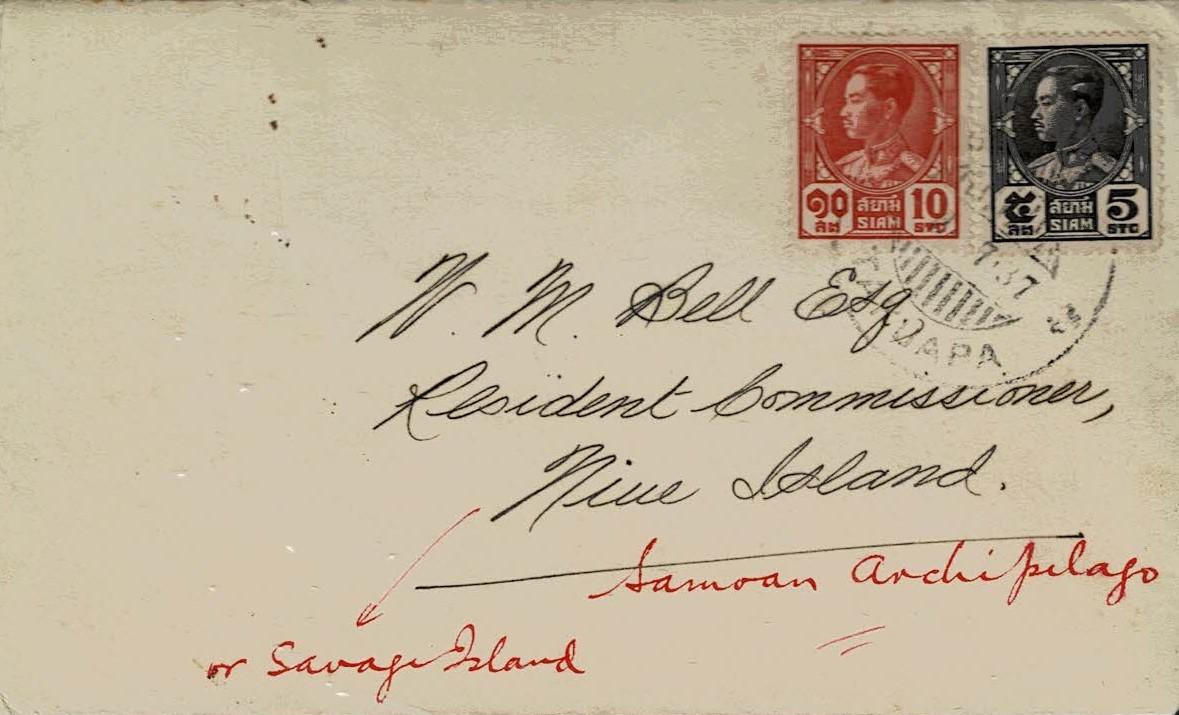 ๑๐ สยาม 10
สต. SIAM STG
๕ สยาม 5
สต. SIAM STG
7·37
W. M. Bell Esq.
Resident Commissioner,
Niue Island.
Samoan Archipelago
or Savage Island